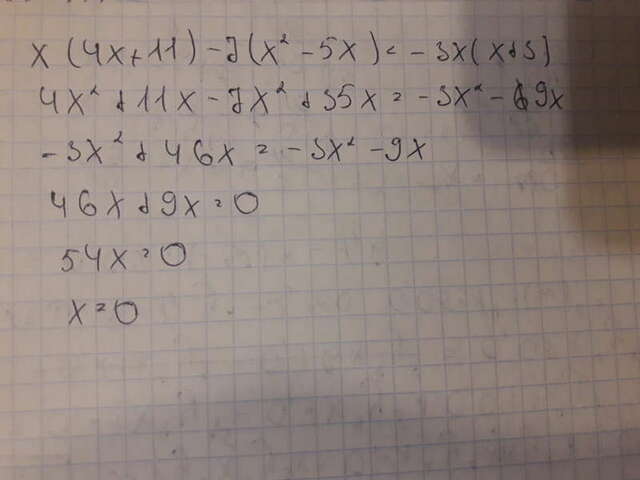 x (4x+11) - 7(x² - 5x) = - 3x(x+3)
4x² + 11x - 7x² + 35x = - 3x² - 9x
- 3x² + 46x = - 3x² - 9x
46x + 9x = 0
54x = 0
x = 0